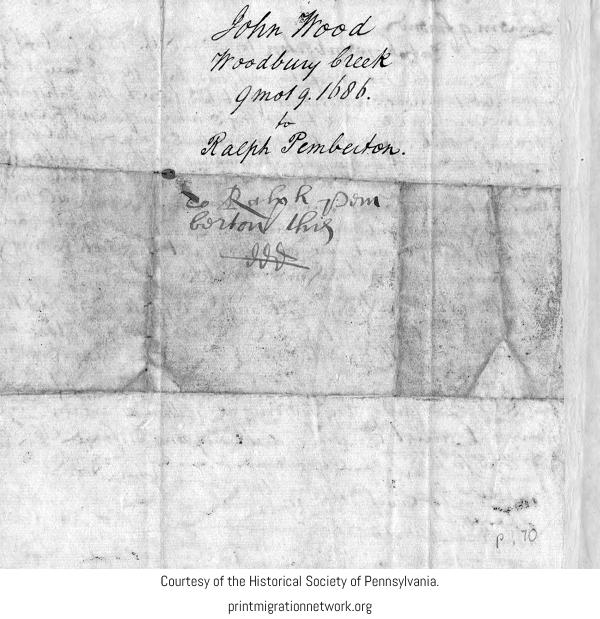 John Wood
Woodbury Creek
9 mo 19. 1686.
to
Ralph Pemberton.
to Ralph Pem
berton this
p. 70
Courtesy of the Historical Society of Pennsylvania.
printmigrationnetwork.org